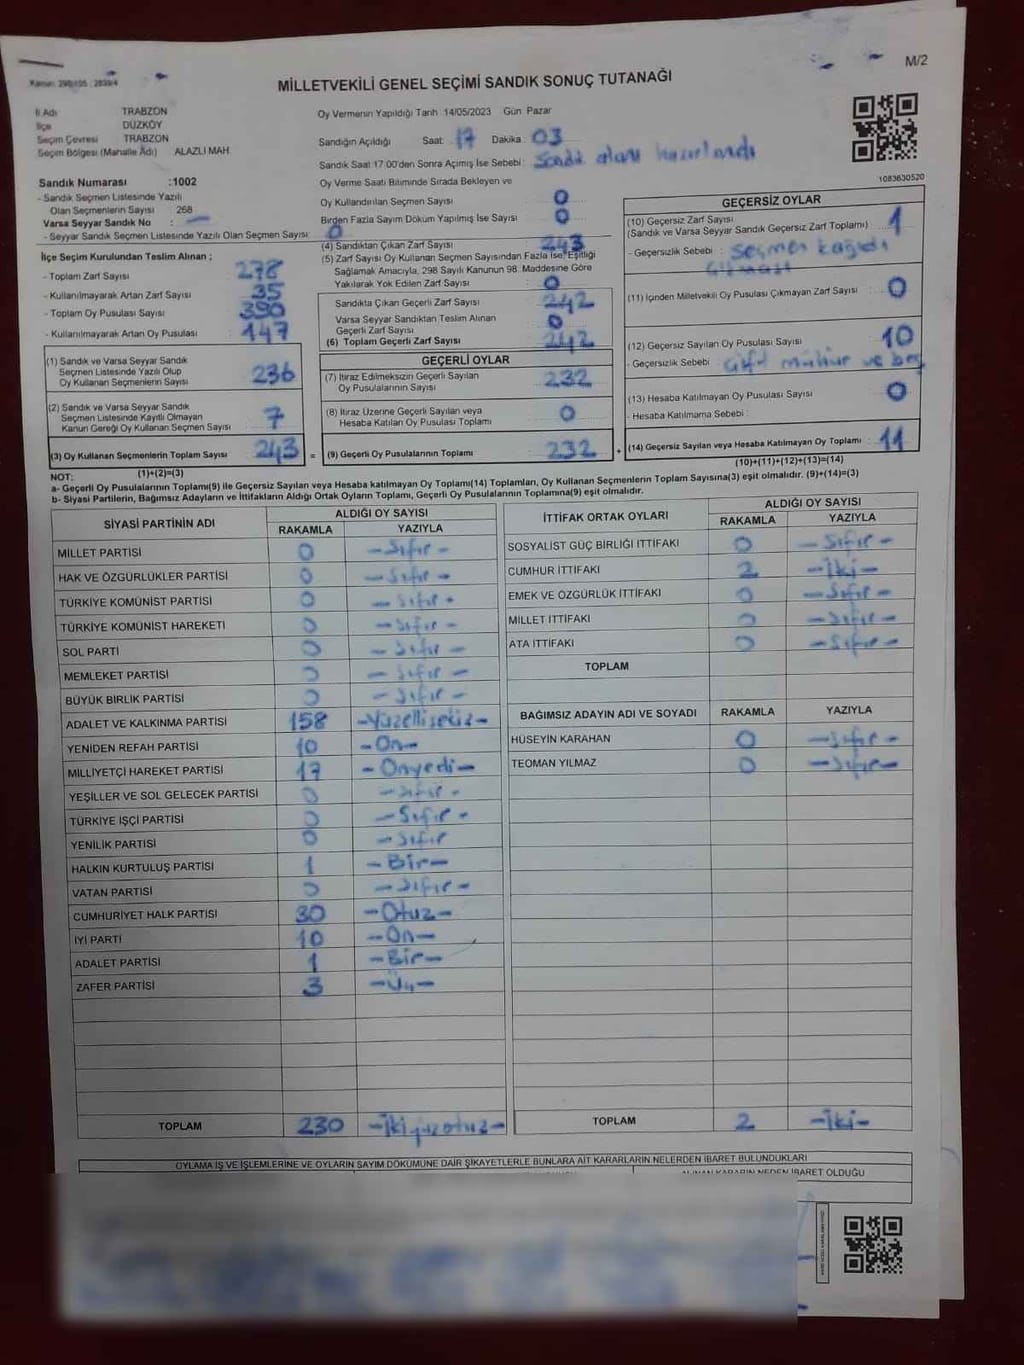 M/2
Kanun: 298/105 : 2839/4
MİLLETVEKİLİ GENEL SEÇİMİ SANDIK SONUÇ TUTANAĞI
İl Adı TRABZON
İlçe DÜZKÖY
Seçim Çevresi TRABZON
Seçim Bölgesi (Mahalle Adı) ALAZLI MAH.
Sandık Numarası :1002
- Sandık Seçmen Listesinde Yazılı
Olan Seçmenlerin Sayısı : 268
Varsa Seyyar Sandık No : -
- Seyyar Sandık Seçmen Listesinde Yazılı Olan Seçmen Sayısı: 0
İlçe Seçim Kurulundan Teslim Alınan ;
- Toplam Zarf Sayısı : 278
- Kullanılmayarak Artan Zarf Sayısı : 35
- Toplam Oy Pusulası Sayısı : 390
- Kullanılmayarak Artan Oy Pusulası : 147
(1) Sandık ve Varsa Seyyar Sandık
Seçmen Listesinde Yazılı Olup
Oy Kullanan Seçmenlerin Sayısı : 236
(2) Sandık ve Varsa Seyyar Sandık
Seçmen Listesinde Kayıtlı Olmayan
Kanun Gereği Oy Kullanan Seçmen Sayısı : 7
(3) Oy Kullanan Seçmenlerin Toplam Sayısı : 243
(1)+(2)=(3)
Oy Vermenin Yapıldığı Tarih :14/05/2023 Gün :Pazar
Sandığın Açıldığı Saat: 17 Dakika : 03
Sandık Saat 17:00'den Sonra Açılmış İse Sebebi : Sandık alanı hazırlandı
Oy Verme Saati Bitiminde Sırada Bekleyen ve
Oy Kullandırılan Seçmen Sayısı : 0
Birden Fazla Sayım Döküm Yapılmış İse Sayısı : 0
(4) Sandıktan Çıkan Zarf Sayısı : 243
(5) Zarf Sayısı Oy Kullanan Seçmen Sayısından Fazla İse, Eşitliği
Sağlamak Amacıyla, 298 Sayılı Kanunun 98. Maddesine Göre
Yakılarak Yok Edilen Zarf Sayısı : 0
Sandıkta Çıkan Geçerli Zarf Sayısı : 242
Varsa Seyyar Sandıktan Teslim Alınan
Geçerli Zarf Sayısı : 0
(6) Toplam Geçerli Zarf Sayısı : 242
GEÇERLİ OYLAR
(7) İtiraz Edilmeksizin Geçerli Sayılan
Oy Pusulalarının Sayısı : 232
(8) İtiraz Üzerine Geçerli Sayılan veya
Hesaba Katılan Oy Pusulası Toplamı : 0
= (9) Geçerli Oy Pusulalarının Toplamı : 232 +
1083630520
GEÇERSİZ OYLAR
(10) Geçersiz Zarf Sayısı
(Sandık ve Varsa Seyyar Sandık Geçersiz Zarf Toplamı) : 1
- Geçersizlik Sebebi : Seçmen kağıdı
(11) İçinden Milletvekili Oy Pusulası Çıkmayan Zarf Sayısı : 0
(12) Geçersiz Sayılan Oy Pusulası Sayısı : 10
- Geçersizlik Sebebi : Çift mühür ve boş
(13) Hesaba Katılmayan Oy Pusulası Sayısı : 0
- Hesaba Katılmama Sebebi :
(14) Geçersiz Sayılan veya Hesaba Katılmayan Oy Toplamı : 11
(10)+(11)+(12)+(13)=(14)
NOT:
a- Geçerli Oy Pusulalarının Toplamı(9) ile Geçersiz Sayılan veya Hesaba katılmayan Oy Toplamı(14) Toplamları, Oy Kullanan Seçmenlerin Toplam Sayısına(3) eşit olmalıdır. (9)+(14)=(3)
b- Siyasi Partilerin, Bağımsız Adayların ve İttifakların Aldığı Ortak Oyların Toplamı, Geçerli Oy Pusulalarının Toplamına(9) eşit olmalıdır.
SİYASİ PARTİNİN ADI ALDIĞI OY SAYISI
RAKAMLA YAZIYLA
MİLLET PARTİSİ 0 -Sıfır-
HAK VE ÖZGÜRLÜKLER PARTİSİ 0 -Sıfır-
TÜRKİYE KOMÜNİST PARTİSİ 0 -Sıfır-
TÜRKİYE KOMÜNİST HAREKETİ 0 -Sıfır-
SOL PARTİ 0 -Sıfır-
MEMLEKET PARTİSİ 0 -Sıfır-
BÜYÜK BİRLİK PARTİSİ 0 -Sıfır-
ADALET VE KALKINMA PARTİSİ 158 -Yüzellisekiz-
YENİDEN REFAH PARTİSİ 10 -On-
MİLLİYETÇİ HAREKET PARTİSİ 17 -Onyedi-
YEŞİLLER VE SOL GELECEK PARTİSİ 0 -Sıfır-
TÜRKİYE İŞÇİ PARTİSİ 0 -Sıfır-
YENİLİK PARTİSİ 0 -Sıfır
HALKIN KURTULUŞ PARTİSİ 1 -Bir-
VATAN PARTİSİ 0 -Sıfır-
CUMHURİYET HALK PARTİSİ 30 -Otuz-
İYİ PARTİ 10 -On-
ADALET PARTİSİ 1 -Bir-
ZAFER PARTİSİ 3 -Üç-
TOPLAM 230 -İkiyüzotuz-
İTTİFAK ORTAK OYLARI ALDIĞI OY SAYISI
RAKAMLA YAZIYLA
SOSYALİST GÜÇ BİRLİĞİ İTTİFAKI 0 -Sıfır-
CUMHUR İTTİFAKI 2 -İki-
EMEK VE ÖZGÜRLÜK İTTİFAKI 0 -Sıfır-
MİLLET İTTİFAKI 0 -Sıfır-
ATA İTTİFAKI 0 -Sıfır-
TOPLAM
BAĞIMSIZ ADAYIN ADI VE SOYADI RAKAMLA YAZIYLA
HÜSEYİN KARAHAN 0 -Sıfır-
TEOMAN YILMAZ 0 -Sıfır-
TOPLAM 2 -İki-
OYLAMA İŞ VE İŞLEMLERİNE VE OYLARIN SAYIM DÖKÜMÜNE DAİR ŞİKAYETLERLE BUNLARA AİT KARARLARIN NELERDEN İBARET BULUNDUKLARI
ALINAN KARARIN NEDEN İBARET OLDUĞU